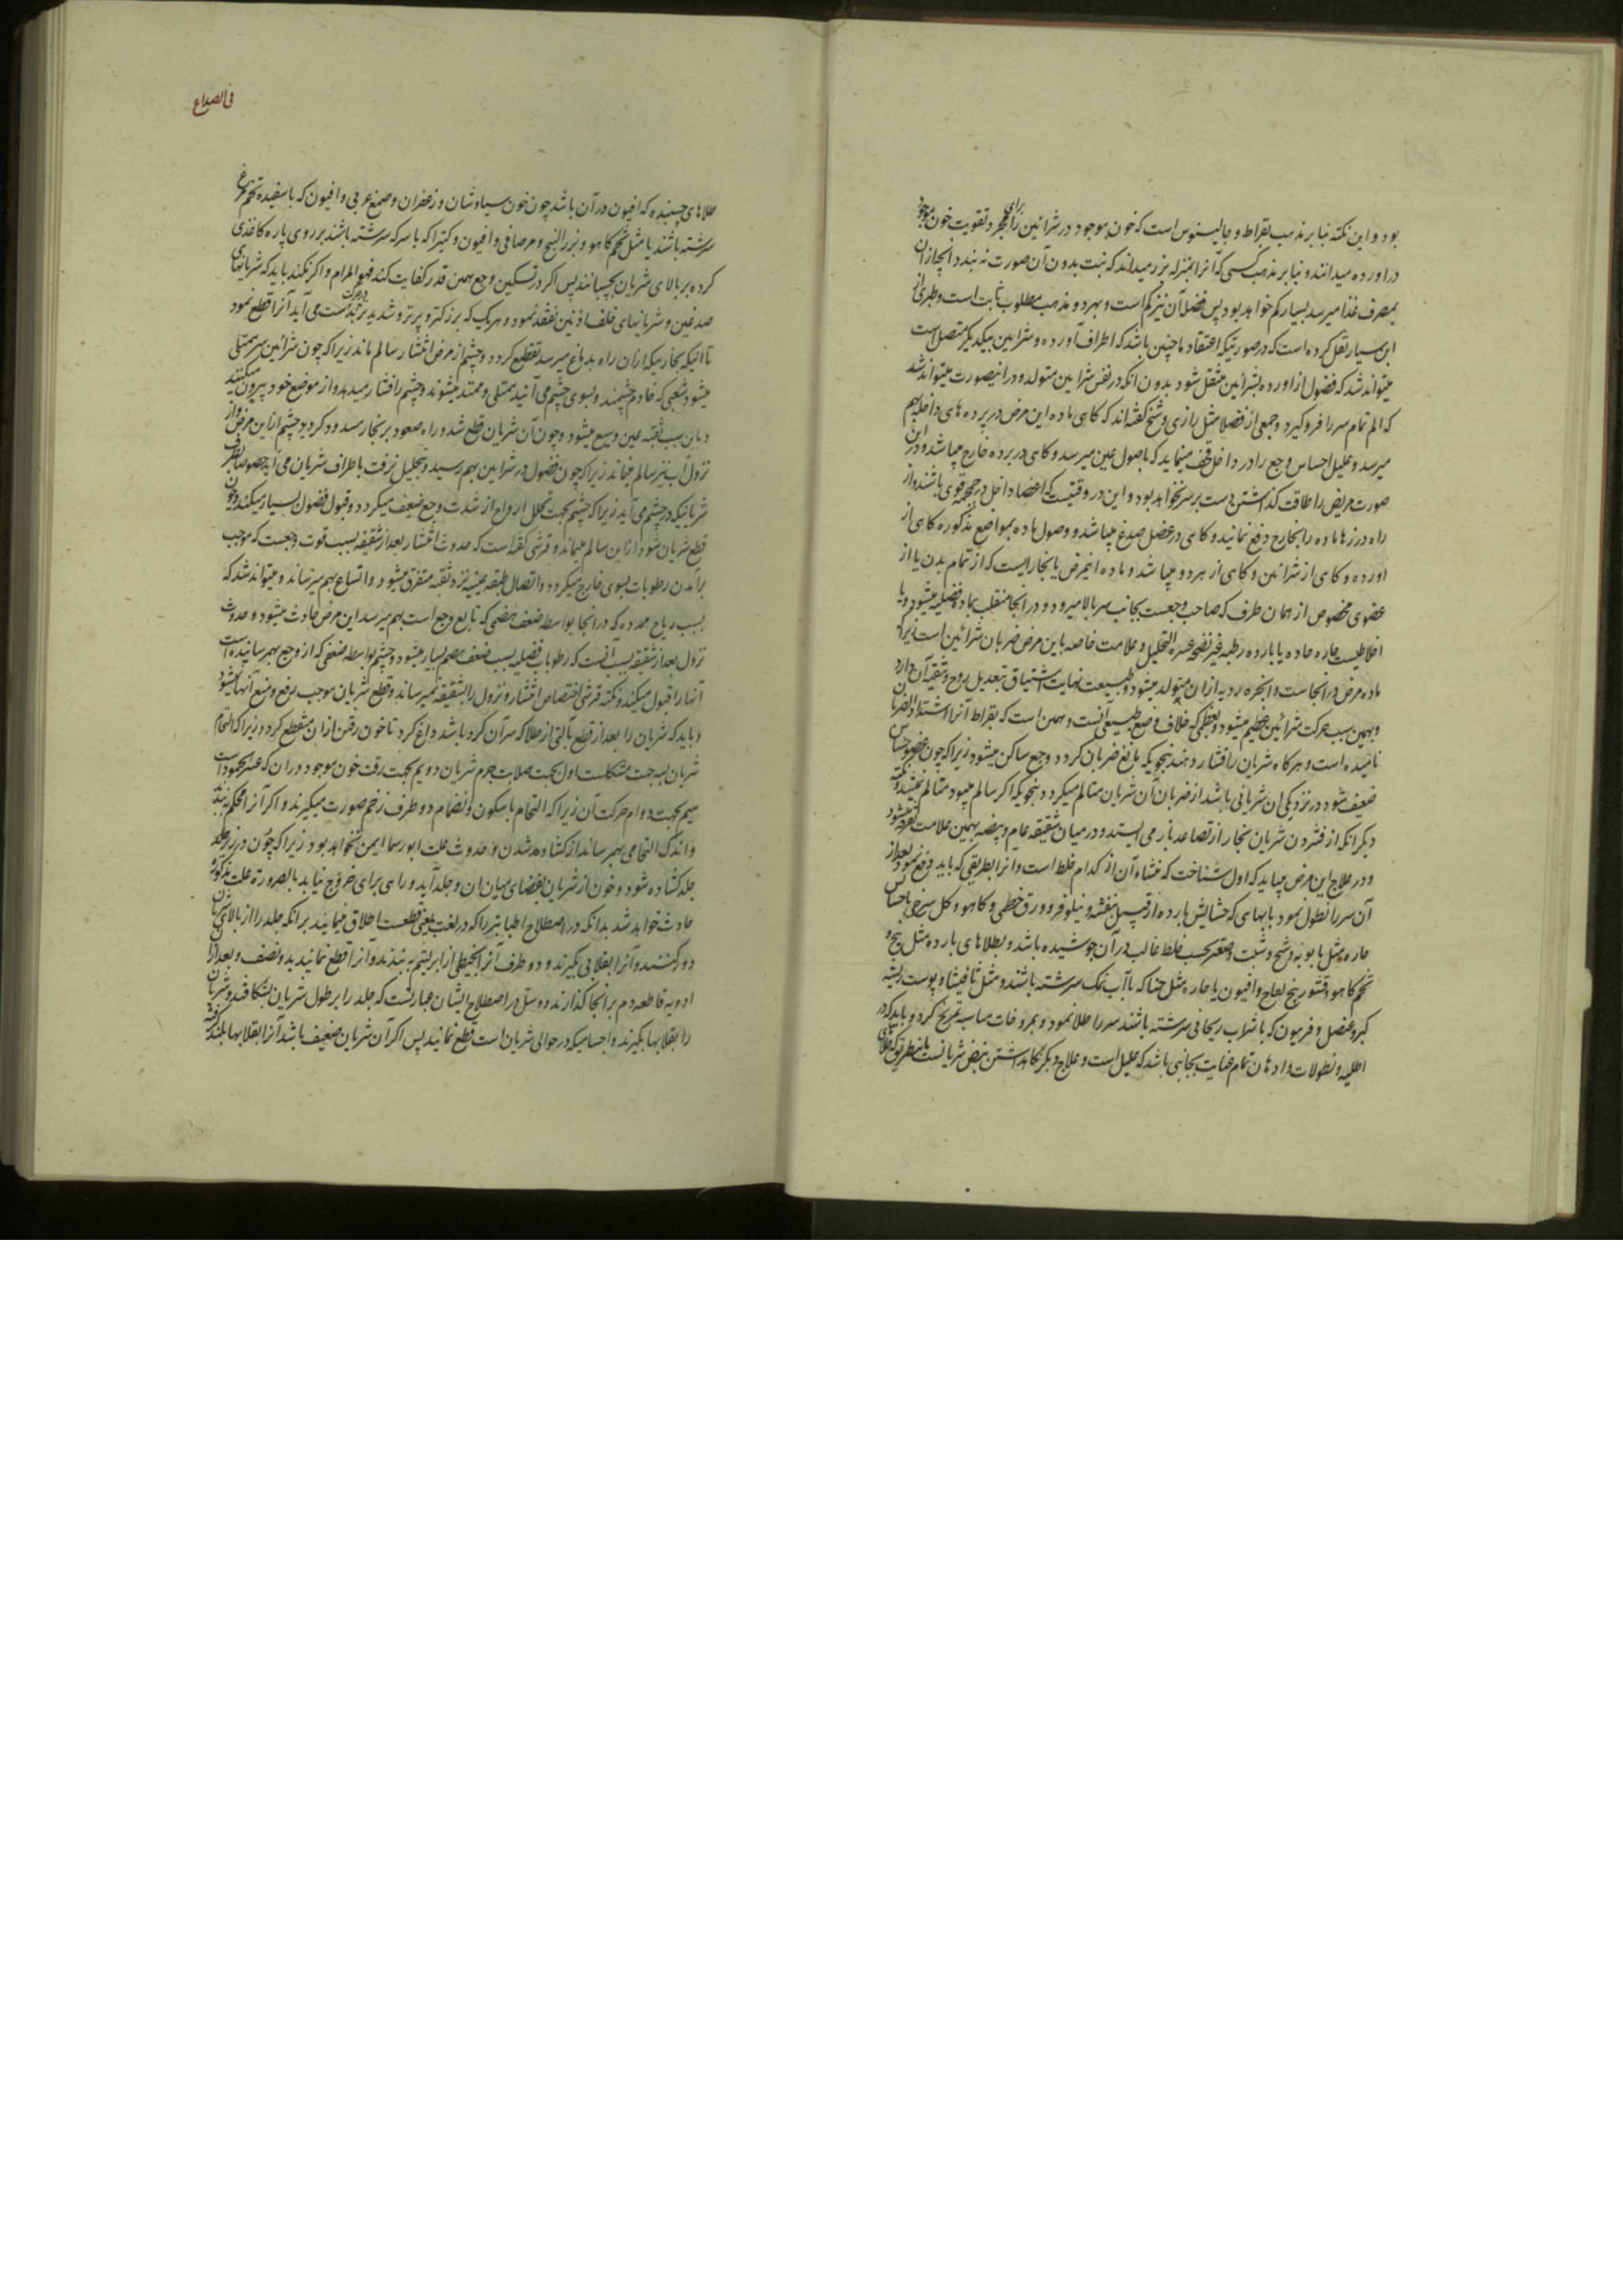 بود و این نکته بنا بر مذهب بقراط و جالینوس است که خون موجود در شرائین را برای تقویت خون موجود
در اورده میدانند و بنا بر مذهب کسی که آنرا بمنزله بزر میداند که نبت بدون آن صورت نه بندد آنچه از آن
بمصرف غذا میرسد بسیار کم خواهد بود پس فضلهٔ آن نیز کم است و بهر دو مذهب مطلوب ثابت است و طبری از
ابن سیار نقل کرده است که در صورتیکه اعتقاد ما چنین باشد که اطراف آورده و شرائین بیکدیگر متصل است
میتواند شد که فضول از اورده بشرائین منتقل شود بدون آنکه در نفس شرائین متولد و در اینصورت میتواند شد
که الم تمام سر را فرو گیرد و جمعی از فضلا مثل رازی و شیخ گفته‌اند که گاهی ماده این مرض در پرده های داخل بهم
میرسد و علیل احساس وجع را در داخل قحف مینماید که باصول عین میرسد و گاهی در پرده خارج میباشد و در این
صورت مریض را طاقت گذاشتن دست بر سر نخواهد بود و این در وقتیست که اعضاء داخل در جمجمه قوی باشند و از
راه درزها ماده را بخارج دفع نمایند و گاهی در عضل صدغ میباشد و وصول ماده بمواضع مذکوره گاهی از
اورده و گاهی از شرائین و گاهی از هر دو میباشد و ماده اینمرض یا بخاریست که از تمام بدن یا از
عضوی مخصوص از همان طرف که صاحب وجعست بجانب سر بالا میرود و در آنجا منقلب بماده فضلیه میشود و یا
اخلاطیست حاره حاده یا بارده رطبه غیر نضجه عسرة التحلیل و علامت خاصه باین مرض ضربان شرائین است زیرا که
ماده مرض در آنجاست و ابخره ردیه از آن متولد میشود و طبیعت نهایت اشتیاق بتعدیل روح و تنقیه آن دارد
و بهمین سبب حرکت شرائین عظیم میشود و بعظمی که خلاف وضع طبیعی آنست و همین است که بقراط آنرا اشتداد الضربان
نامیده است و هرگاه شریان را فشار دهند بنحویکه مانع ضربان گردد وجع ساکن میشود زیرا که چون عضو حساس
ضعیف شود در نزدیکی آن شریانی باشد از ضربان آن شریان متالم میگردد بنحویکه اگر سالم میبود متالم نمیشد و
دیگر آنکه از فشردن شریان بخار از تصاعد باز می ایستد و در میان شقیقه عام و بیضه بهمین علامت تفرقه میشود
و در علاج این مرض میباید که اول شناخت که منشاء آن از کدام خلط است و آنرا بطریقی که باید دفع نمود بعد از
آن سر را نطول نمود بآبهایی که حشائش بارده از قبیل بنفشه و نیلوفر و ورق خطمی و کاهو و گل سرخ یا حشائش
حاره مثل بابونه و شیح و شبت و صعتر بحسب خلط غالب در آن جوشیده باشد و بطلاهای بارده مثل بنج و
تخم کاهو و قشور بیخ لفاح و افیون یا حاره مثل حنا که باآب نمک سرشته باشند و مثل ثافیسا و پوست ریشه
کبر و عنصل و فربیون که با شراب ریحانی سرشته باشند سر را طلا نمود و بمروخات مناسبه تمریخ کرد و باید که در
اطلیه و نطولات و ادهان تمام عنایت بجانبی باشد که علیل است و علاج دیگر نگاهداشتن نبض شریانست باینطریق که طلاهای
فی الصداع
طلاهای چسبنده که افیون در آن باشد چون خون سیاوشان و زعفران و صمغ عربی و افیون که با سفیده تخم مرغ
سرشته باشند یا مثل تخم کاهو و بزر البنج و مر صافی و افیون و کتیرا که با سرکه سرشته باشند بر روی پاره کاغذی
کرده بر بالای شریان بچسبانند پس اگر در تسکین وجع همین قدر کفایت کند فهو المرام و اگر نکند باید که شریانهای
صدغین و شریانهای خلف اذنین تفقد نمود و هریک که بزرگتر و پرتر و شدید تر در حرکت بدست می آید آنرا قطع نمود
تا آنکه بخاریکه از آن راه بدماغ میرسد تقطع گردد و چشم از مرض انتشار سالم ماند زیرا که چون شرائین سر ممتلی
میشود شعبی که خادم چشمند و بسوی چشم می آیند ممتلی و ممتد میشوند و چشم را فشار میدهد و از موضع خود بیرون میکنند
و باین سبب ثقبه عین وسیع میشود و چون آن شریان قطع شد و راه صعود بر بخار مسدود گردید چشم از این مرض و از
نزول آب نیز سالم میماند زیرا که چون فضول در شرائین بهم رسید و بتحلیل نرفت باطراف شریان می آید خصوصا بطرف
شریانیکه در چشم می آید زیرا که چشم بجهت تحلل ارواح از شدت وجع ضعیف میگردد و قبول فضول بسیار میکند و چون
قطع شریان شود از این سالم میماند و قرشی گفته است که حدوث انتشار بعد از شقیقه بسبب قوت وجعست که موجب
برآمدن رطوبات بسوی خارج میگردد و اتصال طبقه عنبیه نزد ثقبه متفرق میشود و اتساع بهم میرساند و میتواند شد که
بسبب ریاح ممدده که در آنجا بواسطه ضعف هضمی که تابع وجع است بهم میرسد این مرض حادث میشود و حدوث
نزول بعد از شقیقه بسبب آنست که رطوبات فضلیه بسبب ضعف هضم بسیار میشود و چشم بواسطه ضعفی که از وجع بهم رسانیده است
آنها را قبول میکند و نکته قرشی اختصاص انتشار و نزول را بشقیقه نمیرساند و قطع شریان موجب رفع و منع آنها میشود
و باید که شریان را بعد از قطع بآلتی از طلا که سر آن کرد باشد داغ کرد تا خون رفتن از آن منقطع گردد زیرا که التحام
شریان بسه جهت مشکلست اول بجهت صلابت جرم شریان دویم بجهت رقت خون موجود در آن که عسر الجمود است
سیم بجهت دوام حرکت آن زیرا که التحام با سکون و انضمام دو طرف زخم صورت میگیرند و اگر آنرا محکم بندند
و اندک التحامی بهم رساند از گشاده شدن و حدوث علت ابورسما ایمن نخواهد بود زیرا که چون در زیر جلد
جلد گشاده شود و خون از شریان بفضای میان آن و جلد آید و راهی برای خروج نیابد بالضروره علت مذکوره
حادث خواهد شد بدانکه در اصطلاح اطبا بتر را که در لغت بمعنی قطعست اطلاق مینمایند بر آنکه جلد را از بالای شریان
دور کنند و آنرا بقلابی بگیرند و دو طرف آنرا بخیطی از ابریشم به بندند و آنرا قطع نمایند بدو نصف و بعد از آن
ادویه قاطعه دم بر آنجا گذارند و سل در اصطلاح ایشان عبارتست که جلد را بر طول شریان بشکافند و شریان
را بقلابها بگیرند و اجسامیکه در حوالی شریان است قطع نمایند پس اگر آن شریان ضعیف باشد آنرا بقلابها بلند کرده